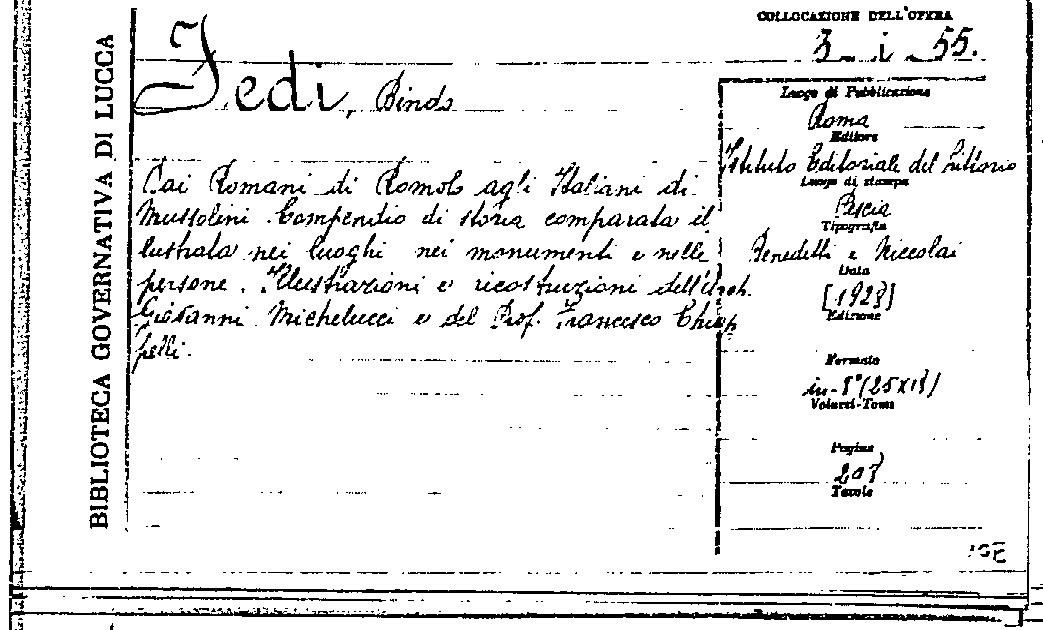 BIBLIOTECA GOVERNATIVA DI LUCCA
COLLOCAZIONE DELL'OPERA
3 - i - 55.
Jedi, Bindo
Dai Romani di Romolo agli Italiani di
Mussolini. Compendio di storia comparata il
lustrata nei luoghi nei monumenti e nelle
persone. Illustrazioni e ricostruzioni dell'Arch.
Giovanni Michelucci e del Prof. Francesco Chiap
pelli.
Luogo di Pubblicazione
Roma
Editore
Istituto Editoriale del Littorio
Luogo di stampa
Pescia
Tipografia
Benedetti e Niccolai
Data
[1928]
Edizione
Formato
in-8° (25x18)
Volumi-Tomi
Pagine
203
Tavole